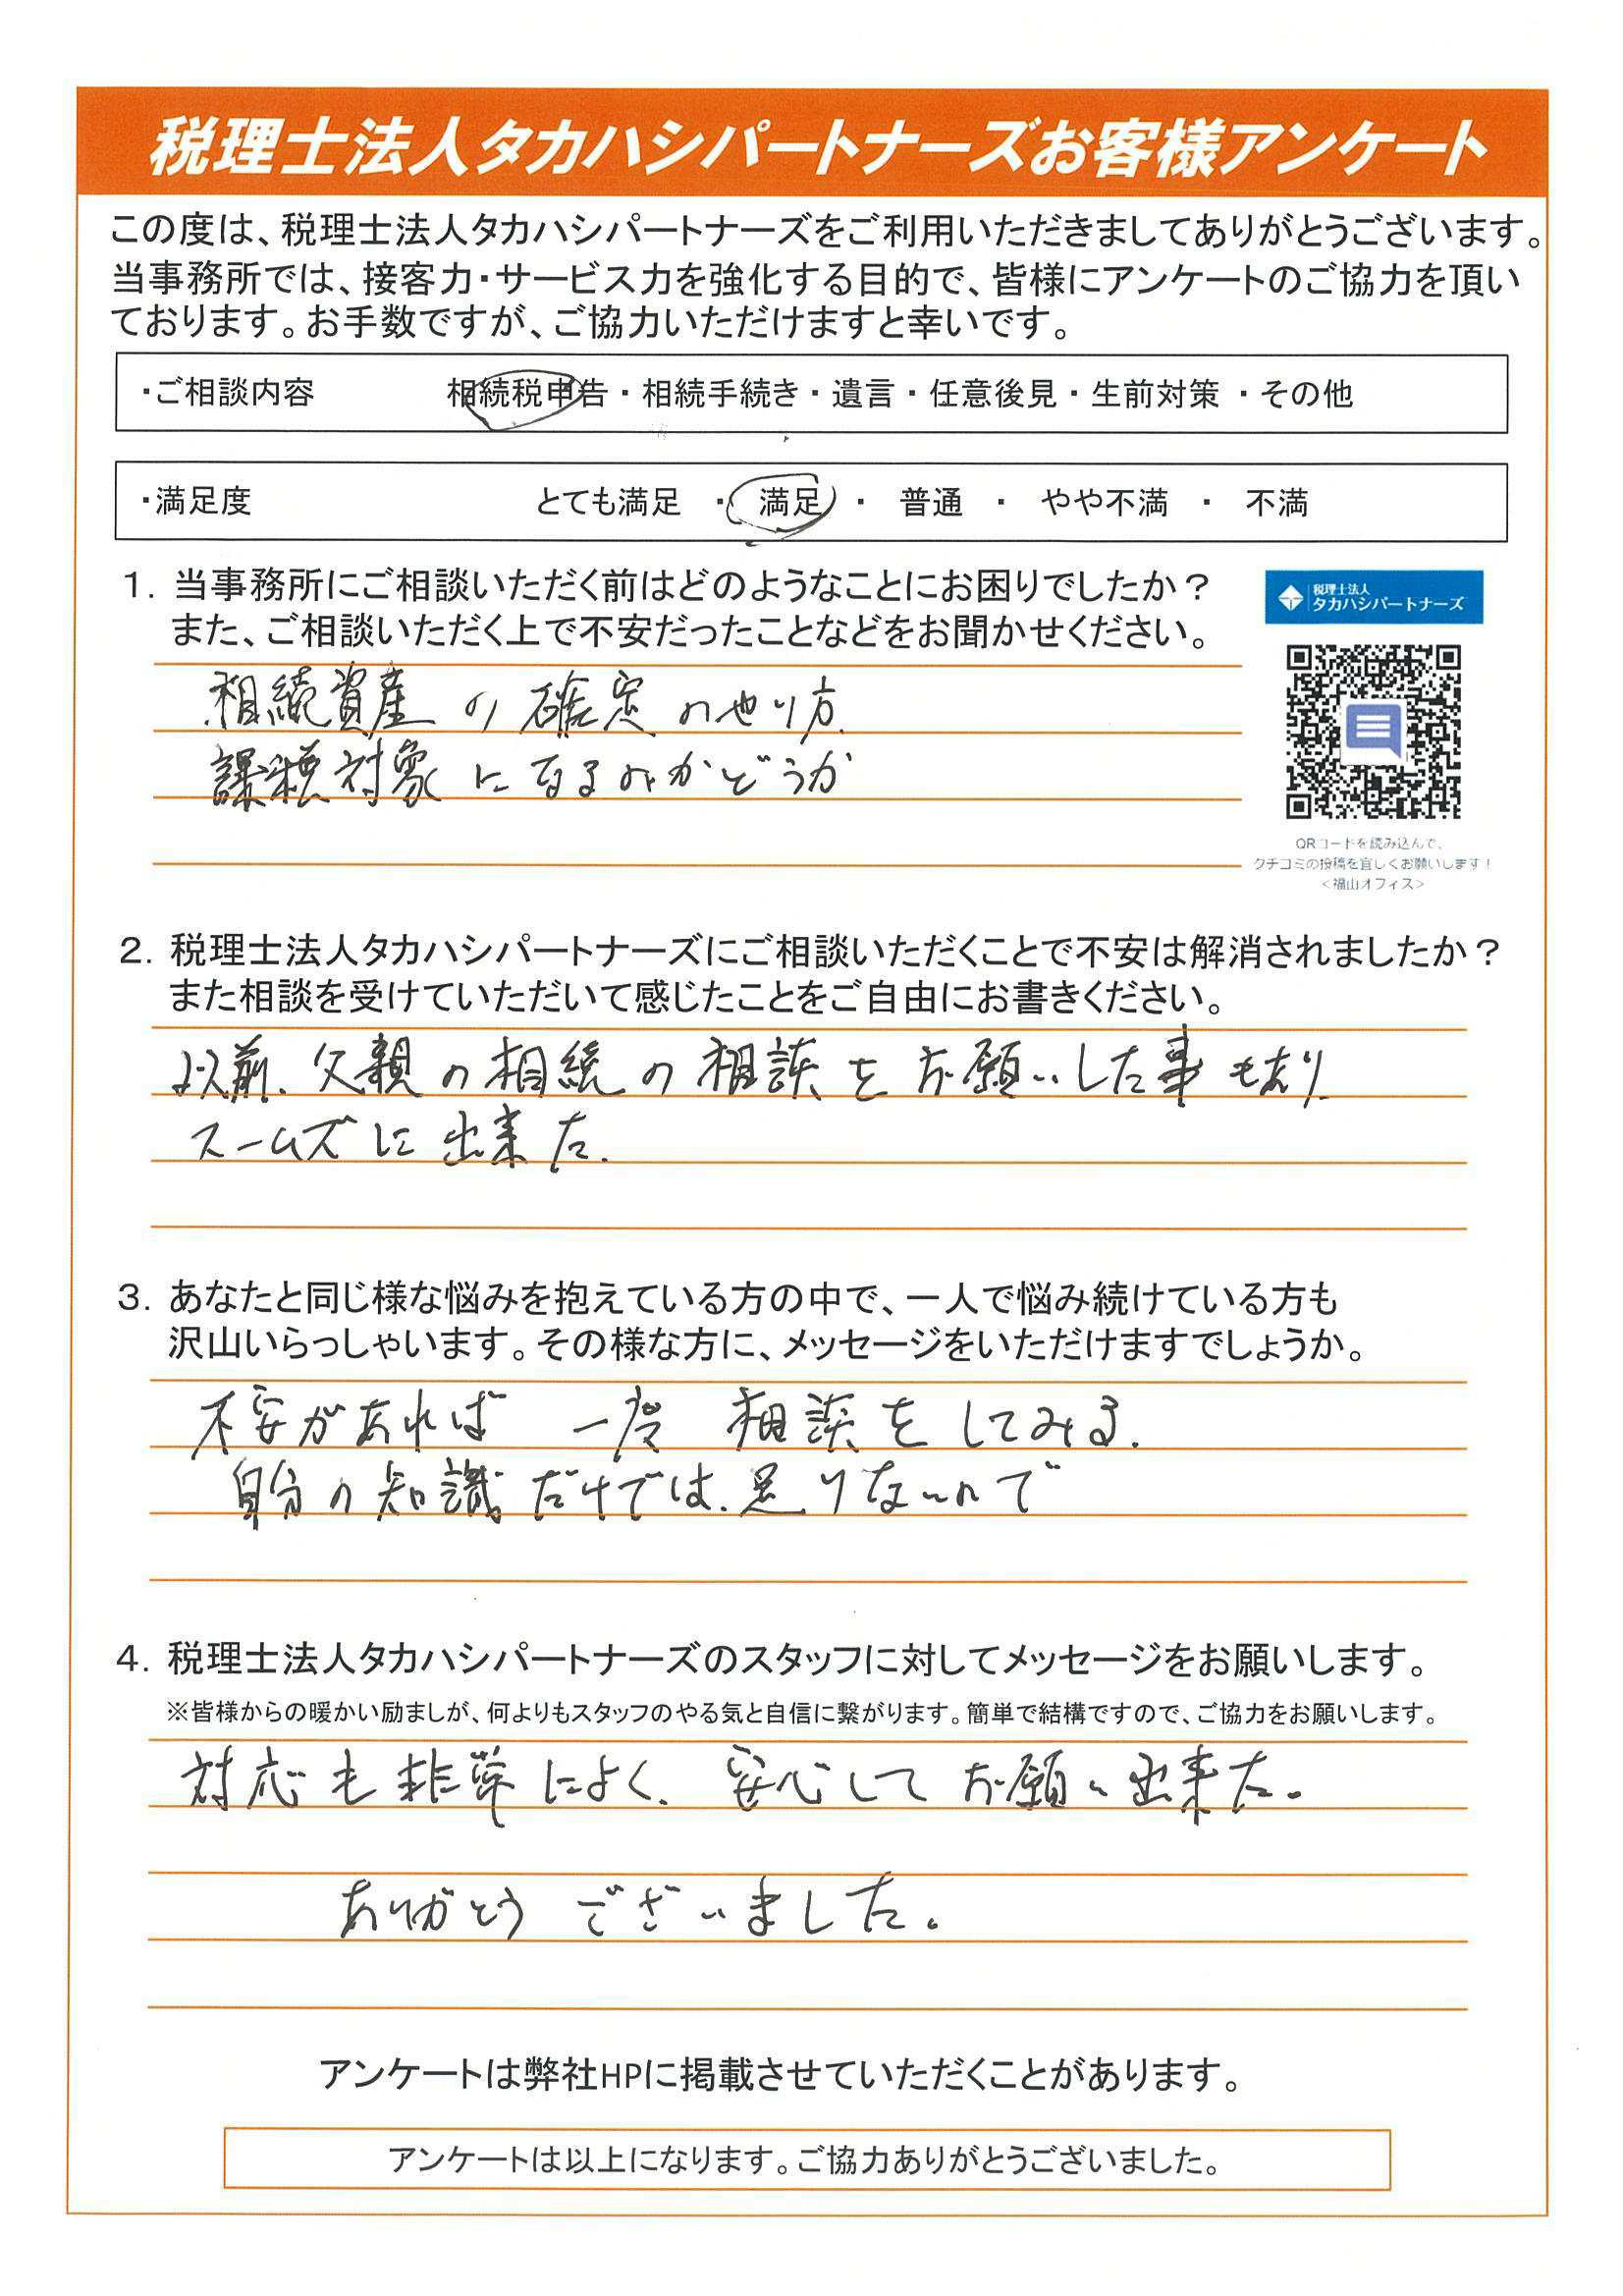 税理士法人タカハシパートナーズお客様アンケート
この度は、税理士法人タカハシパートナーズをご利用いただきましてありがとうございます。
当事務所では、接客力・サービス力を強化する目的で、皆様にアンケートのご協力を頂い
ております。お手数ですが、ご協力いただけますと幸いです。
・ご相談内容 相続税申告・相続手続き・遺言・任意後見・生前対策・その他
・満足度 とても満足 ・ 満足 ・ 普通 ・ やや不満 ・ 不満
1. 当事務所にご相談いただく前はどのようなことにお困りでしたか？
また、ご相談いただく上で不安だったことなどをお聞かせください。
税理士法人
タカハシパートナーズ
相続資産の確定のやり方
課税対象になるのかどうか
QRコードを読み込んで、
クチコミの投稿を宜しくお願いします！
＜福山オフィス＞
2. 税理士法人タカハシパートナーズにご相談いただくことで不安は解消されましたか？
また相談を受けていただいて感じたことをご自由にお書きください。
以前、父親の相続の相談をお願いした事もあり
スームズに出来た.
3. あなたと同じ様な悩みを抱えている方の中で、一人で悩み続けている方も
沢山いらっしゃいます。その様な方に、メッセージをいただけますでしょうか。
不安があれば 一度 相談をしてみる.
自分の知識だけでは、足りないので
4. 税理士法人タカハシパートナーズのスタッフに対してメッセージをお願いします。
※皆様からの暖かい励ましが、何よりもスタッフのやる気と自信に繋がります。簡単で結構ですので、ご協力をお願いします。
対応も非常によく、安心してお願い出来た。
ありがとう ございました。
アンケートは弊社HPに掲載させていただくことがあります。
アンケートは以上になります。ご協力ありがとうございました。